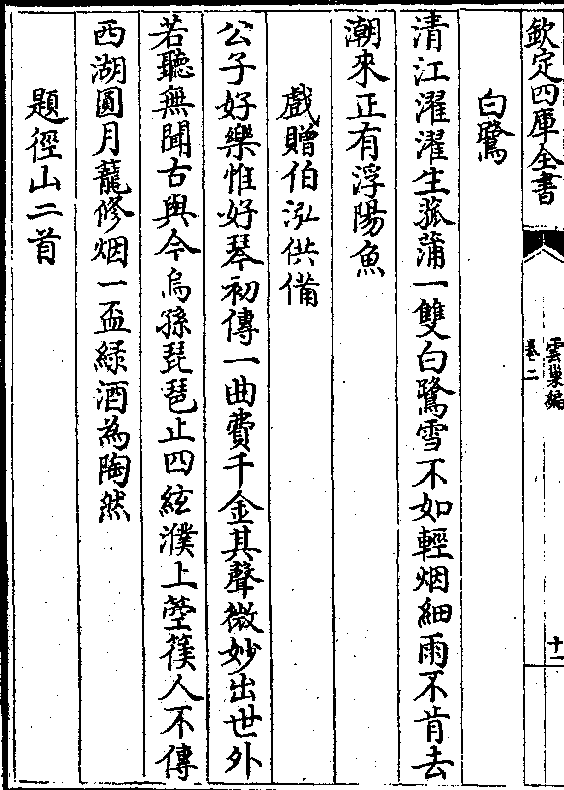 欽定四庫全書
雲巢編
卷二
十一
白鷺
清江濯濯生菰蒲一雙白鷺雪不如輕烟細雨不肯去
潮來正有浮陽魚
戲贈伯泓供備
公子好樂惟好琴初傳一曲費千金其聲微妙出世外
若聽無聞古與今烏孫琵琶止四絃濮上箜篌人不傳
西湖圓月蘢修烟一盃緑酒為陶然
題徑山二首